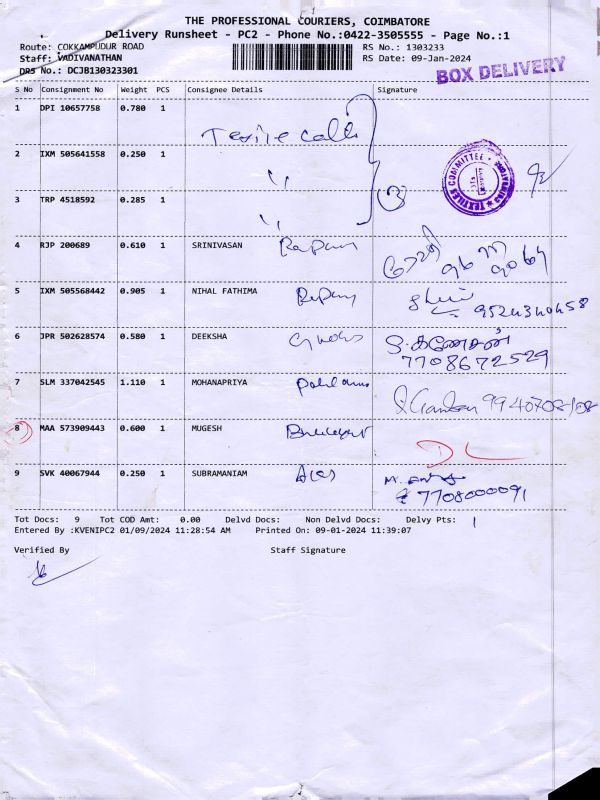 THE PROFESSIONAL COURIERS, COIMBATORE
Delivery Runsheet - PC2 - Phone No.:0422-3505555 - Page No.:1
Route: COKKAMPUDUR ROAD RS No.: 1303233
Staff: VADIVANATHAN RS Date: 09-Jan-2024
DRS No.: DCJB130323301 BOX DELIVERY
S No Consignment No Weight PCS Consignee Details Signature
1 DPI 10657758 0.780 1
2 IXM 505641558 0.250 1
TEXTILES COMMITTEE
3 TRP 4518592 0.285 1 3
4 RJP 200689 0.610 1 SRINIVASAN
5 IXM 505568442 0.905 1 NIHAL FATHIMA 9524340458
6 JPR 502628574 0.580 1 DEEKSHA S. கணேசன்
7708672529
7 SLM 337042545 1.110 1 MOHANAPRIYA
8 MAA 573909443 0.600 1 MUGESH DL
9 SVK 40067944 0.250 1 SUBRAMANIAM
7708000091
Tot Docs: 9 Tot COD Amt: 0.00 Delvd Docs: Non Delvd Docs: Delvy Pts:
Entered By :KVENIPC2 01/09/2024 11:28:54 AM Printed On: 09-01-2024 11:39:07
Verified By Staff Signature